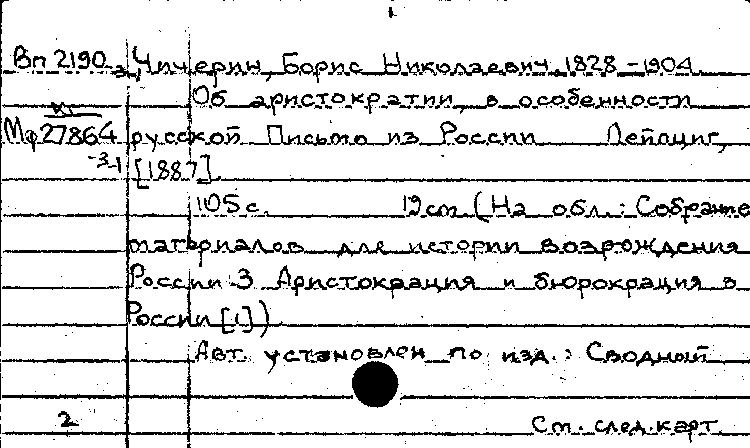 Вп 2190 Чичерин, Борис Николаевич, 1828-1904
-3-1
Об аристократии, в особенности
Мф 27864 русской Письмо из России Лейпциг,
-3-1 [1887].
105 с. 19 см. (На обл.: Собрание
материалов для истории возрождения
России 3 Аристокрация и бюрокрация в
России [1])
Авт. установлен по изд.: Сводный
2 См. след. карт.